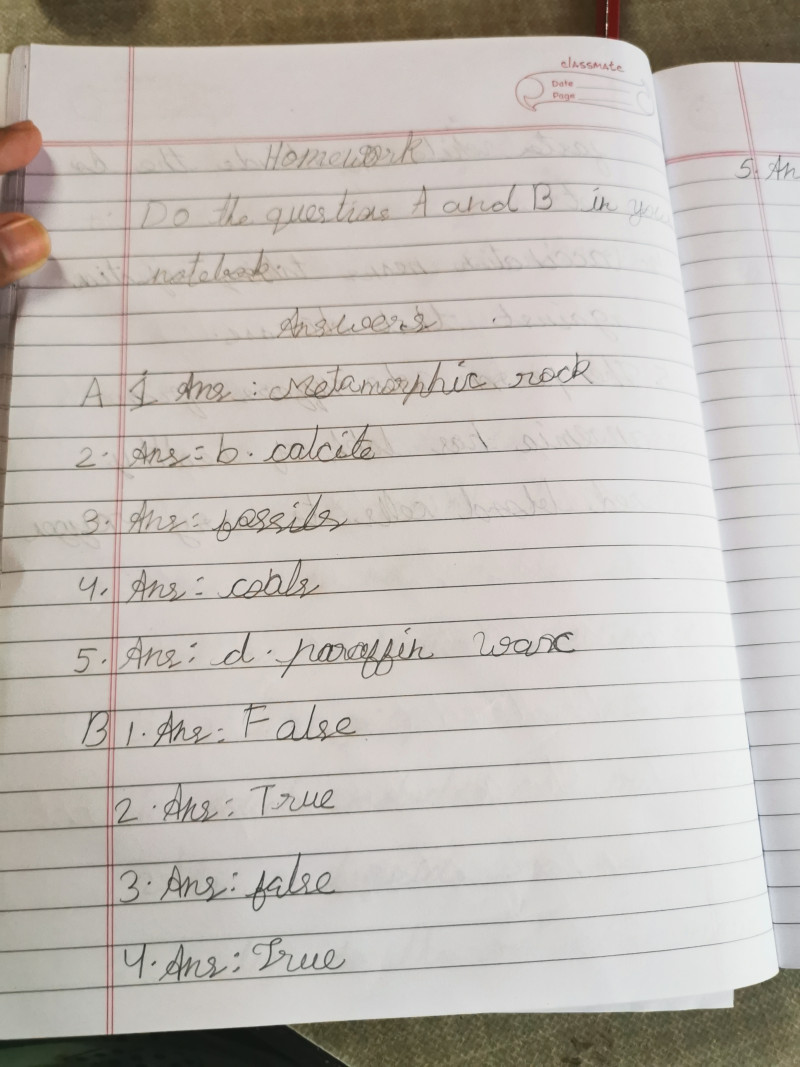 classmate
Date
Page
Homework
Do the questions A and B in you
notebook
Answers
A 1 Ans: Metamorphic rock
2. Ans: b. calcite
3. Ans: fossils
4. Ans: coals
5. Ans: d. paraffin wax
B 1. Ans: False
2. Ans: True
3. Ans: false
4. Ans: True
5. An